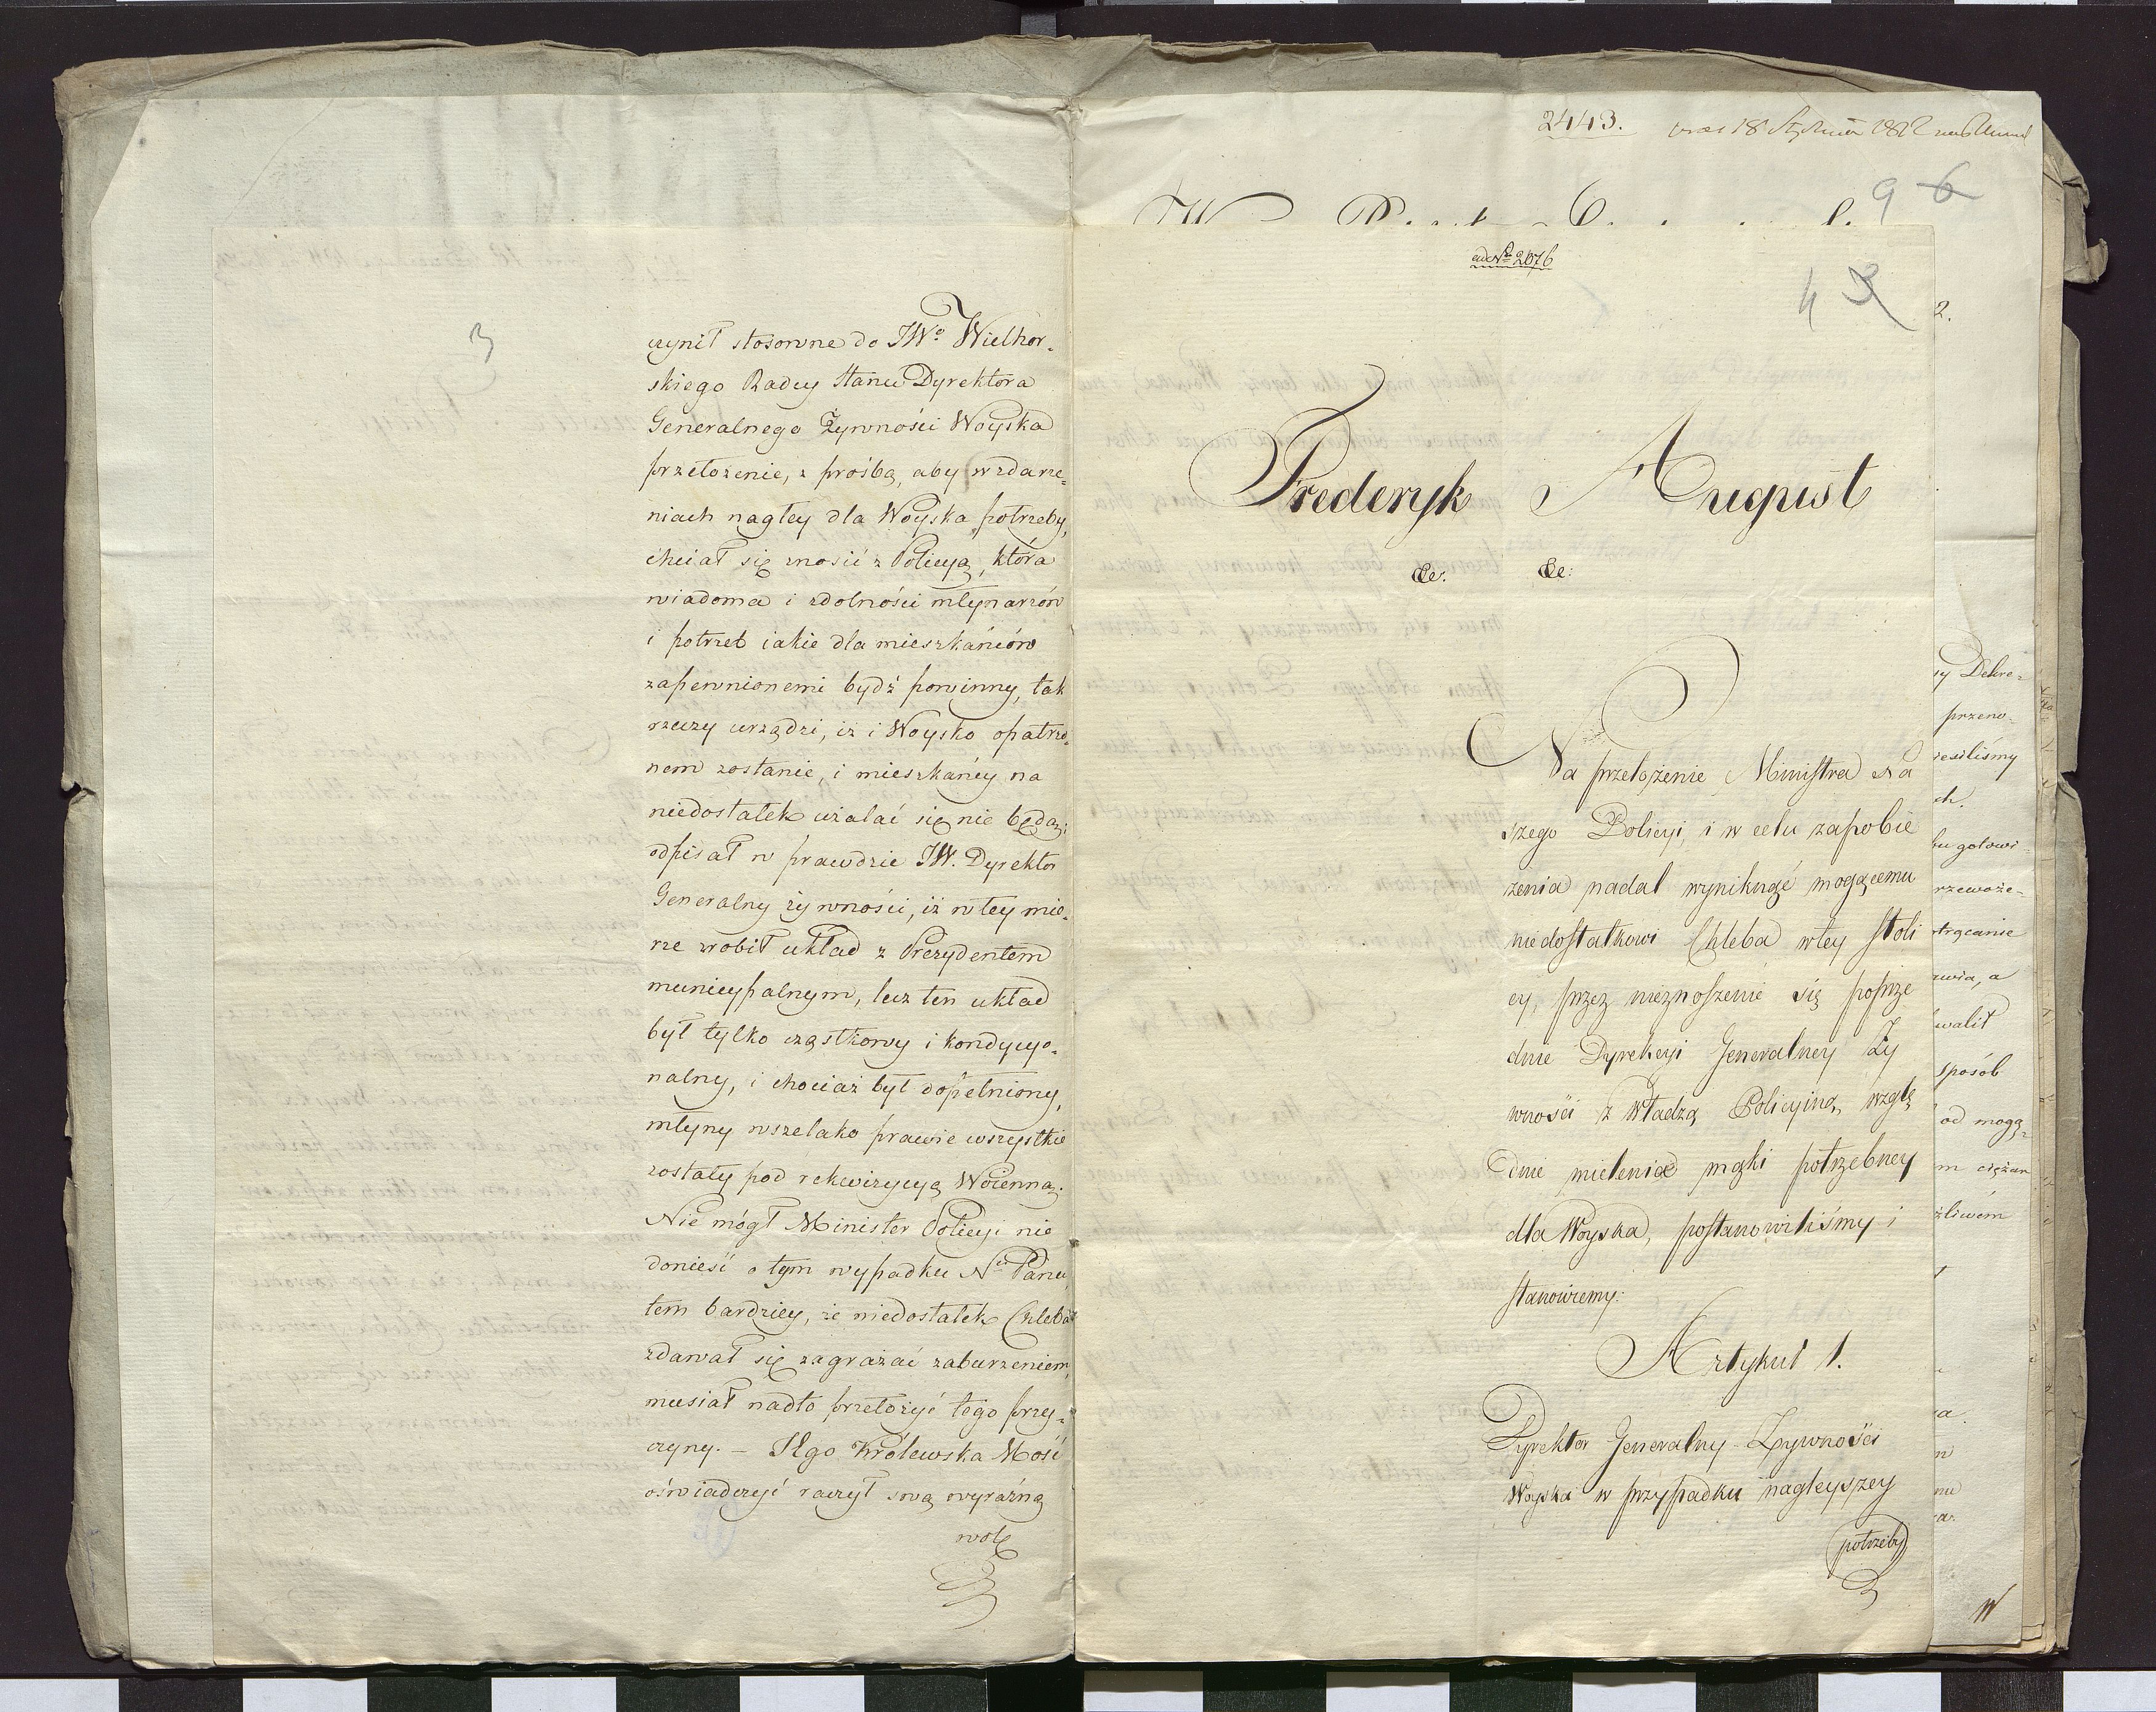 3
czynił stosowne do JWo Wielhor-
skiego Radcy Stanu Dyrektora
Generalnego Żywności Woyska
przełożenie, z prośbą, aby w zdarze-
niach nagłey dla Woyska potrzeby,
chciał się znosić z Policyą, która
wiadoma i zdolności młynarzów
i potrzeb iakie dla mieszkańców
zapewnionemi bydź powinny, tak
rzeczy urządzi, iż i Woysko opatrzo-
nem zostanie, i mieszkańcy na
niedostatek użalać się nie będą;
odpisał w prawdzie JW. Dyrektor
Generalny żywności, iż w tey mie-
rze zrobił układ z Prezydentem
municypalnym, lecz ten układ
był tylko cząstkowy i kondycyo-
nalny, i chociaż był dopełniony,
młyny wszelako prawie wszystkie
zostały pod rekwizycyą Woienną.
Nie mógł Minister Policyi nie
donieść o tym wypadku Nu Panu,
tem bardziey, że niedostatek Chleba
zdawał się zagrażać zaburzeniem,
musiał nadto przełożyć tego przy-
czyny. – JKgo Królewska Mość
oświadczyć raczył swą wyraźną
wolę
2443. 18 Stycznia 1812
9 6
ad No 2076
4 3
Frederyk August
&c. &c:
Na przełożenie Ministra Na
szego Policyi, i w celu zapobie
żenia nadal wyniknąć mogącemu
niedostatkowi Chleba w tey Stoli
cy, przez nieznoszenie się poprze
dnie Dyrekcyi Generalney Ży
wności z Władzą Policyiną, wzglę
dnie mielenia mąki potrzebney
dla Woyska, postanowiliśmy i
stanowiemy:
Artykuł 1.
Dyrektor Generalny Żywności
Woyska w przypadku nagleyszey
potrzeby
2.
y Dekre-
przeno-
ieśliśmy
ch.
bu gotowi-
rzewoże-
trącanie
awia, a
walił
sposób
od mogą-
m ciężar
żliwém
a.
n
nu
a.
W